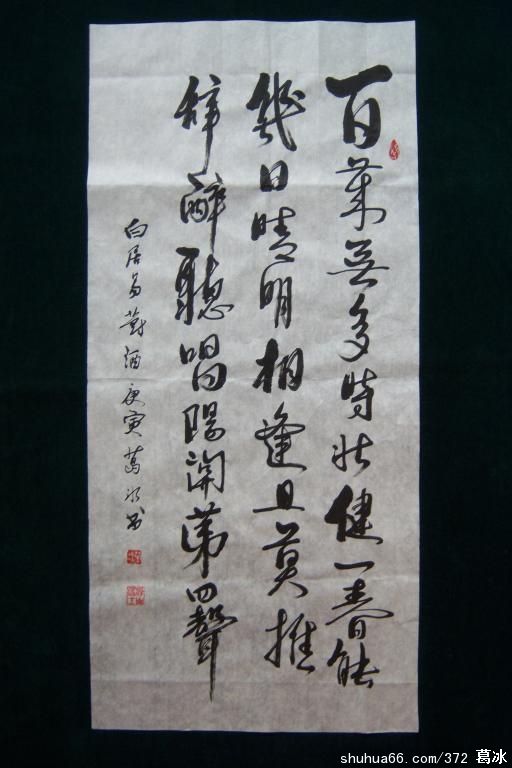 百歲無多時壯健一春能
幾日晴明相逢且莫推
辭醉聽唱陽關第四聲
白居易對酒庚寅葛冰書
shuhua66.com/372 葛冰